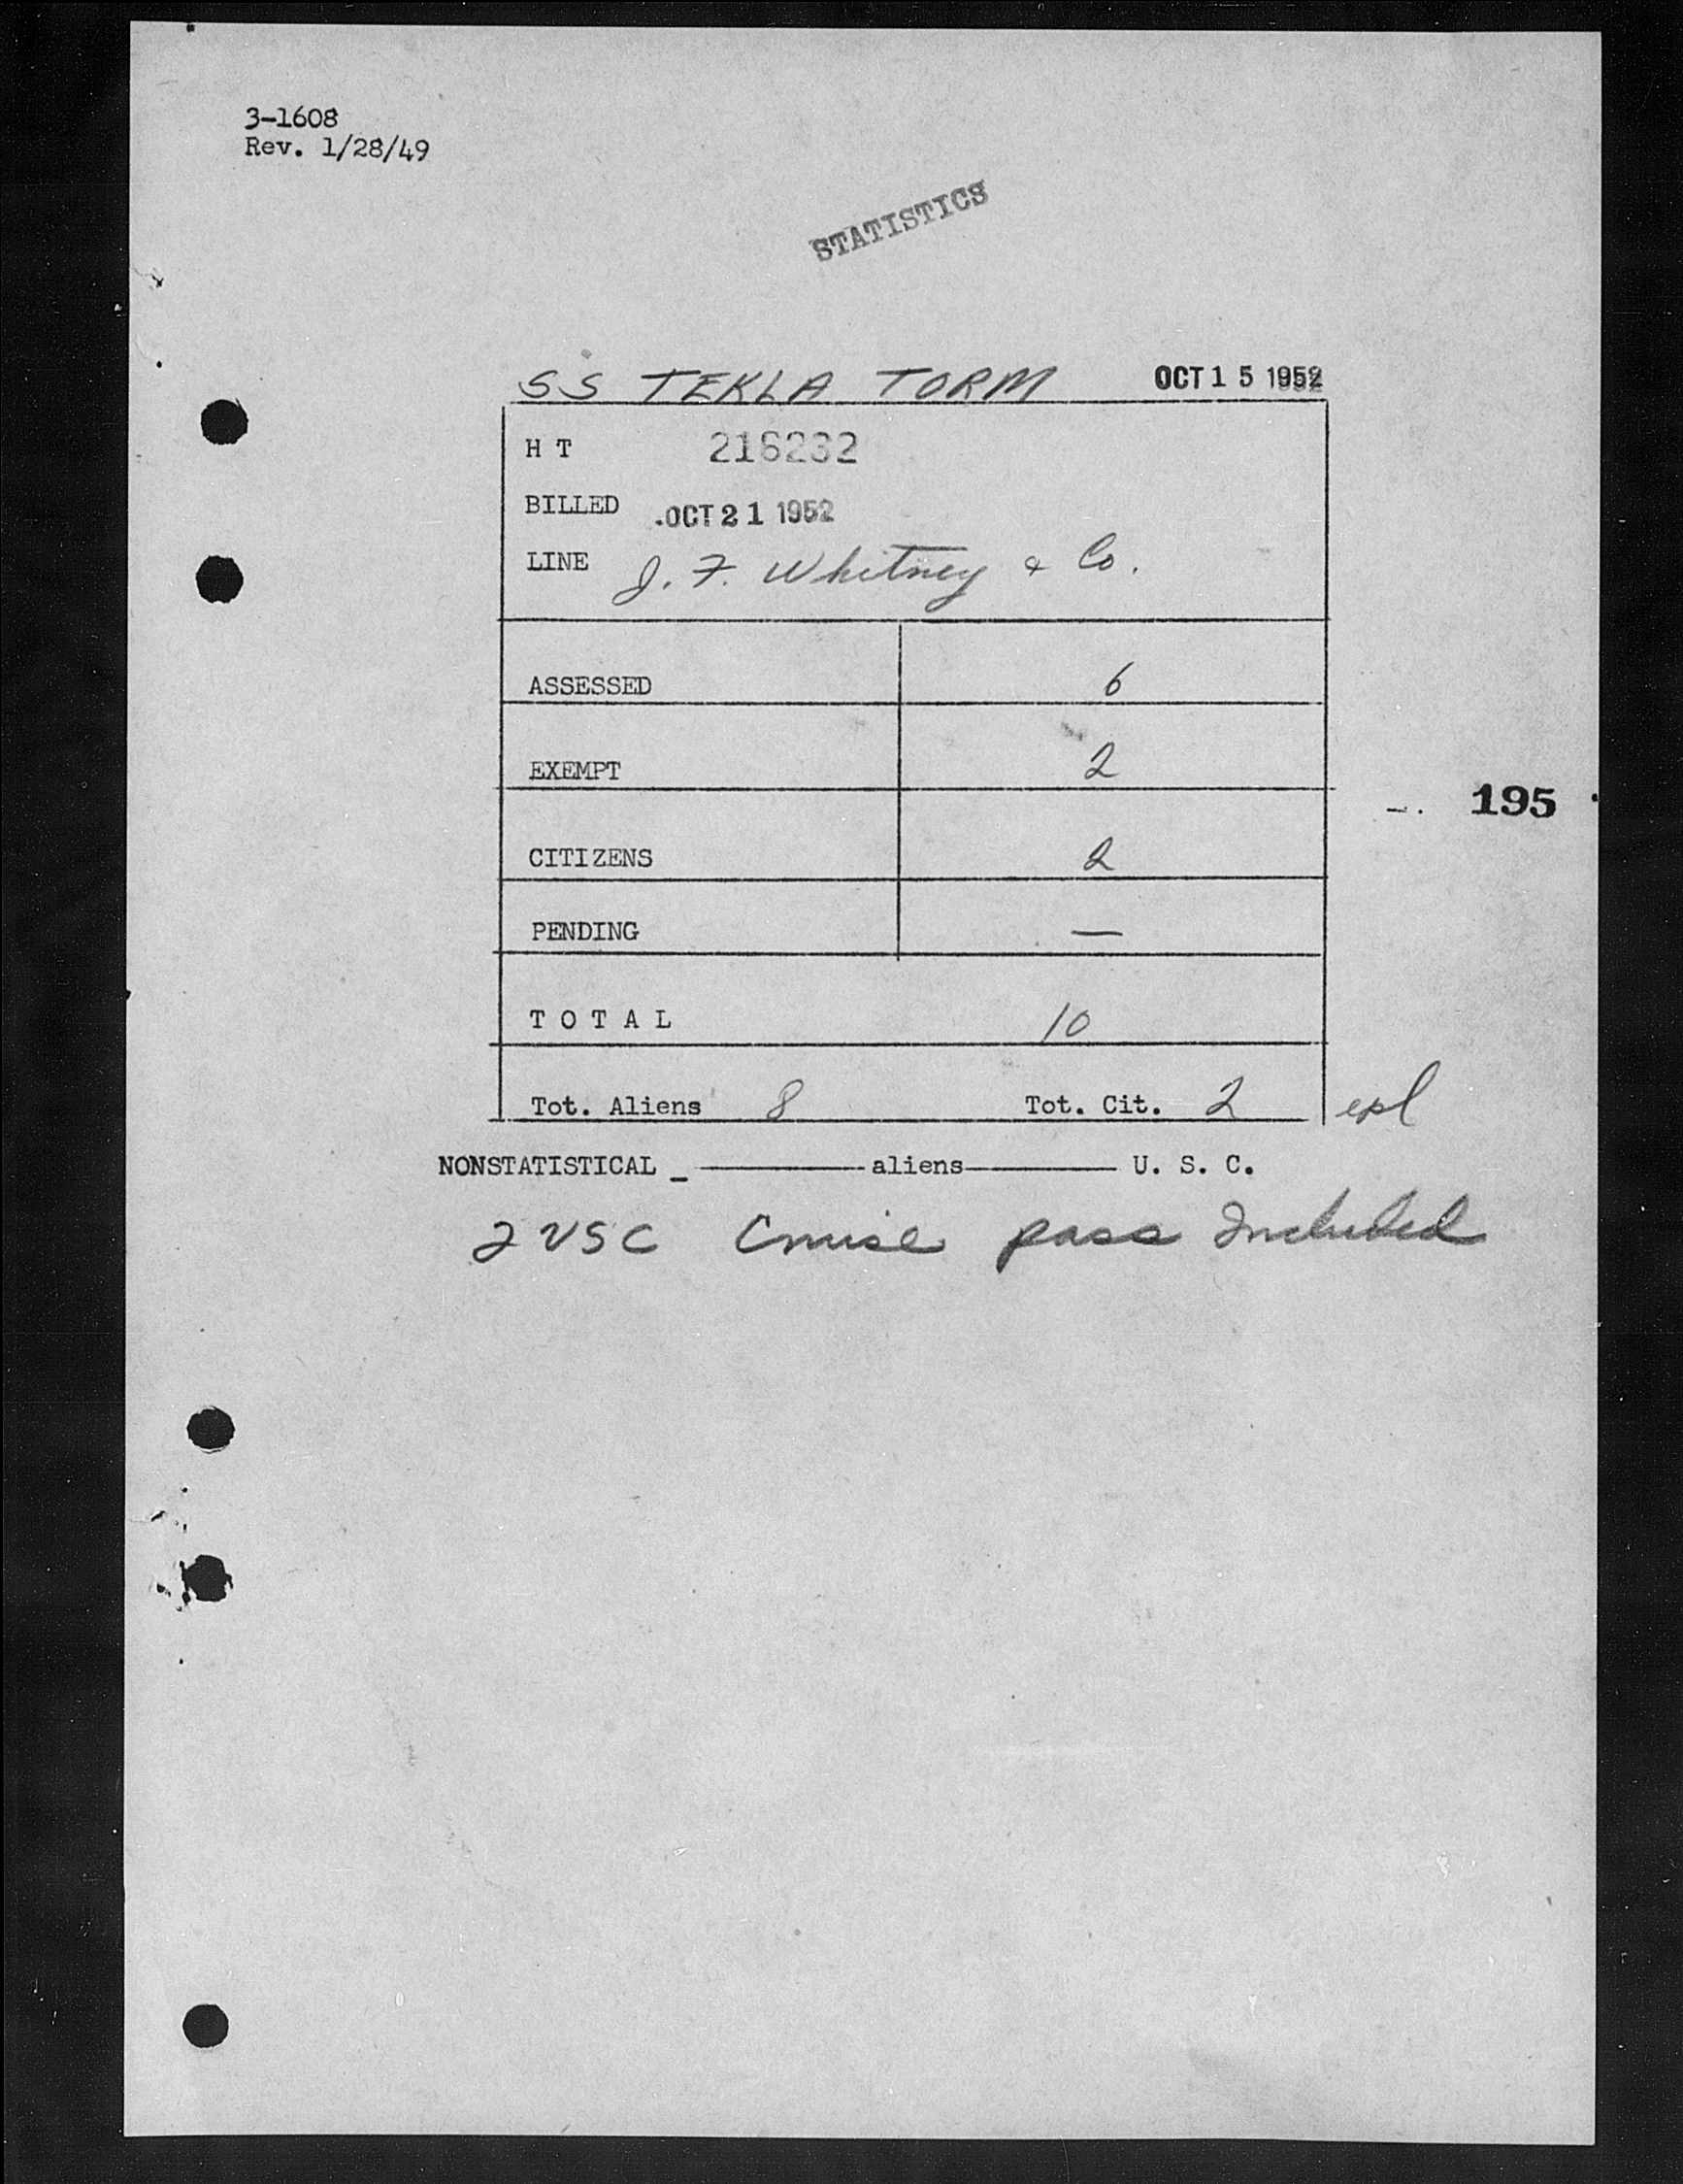 3-1608
Rev. 1/28/49
STATISTICS
SS TEKLA TORM OCT 15 1952
H T 216232
BILLED .OCT 21 1952
LINE J. F. Whitney & Co.
ASSESSED 6
EXEMPT 2
195
CITIZENS 2
PENDING —
T O T A L 10
Tot. Aliens 8 Tot. Cit. 2 epl
NONSTATISTICAL _ ———— aliens ———— U. S. C.
2 USC Cruise pass Included